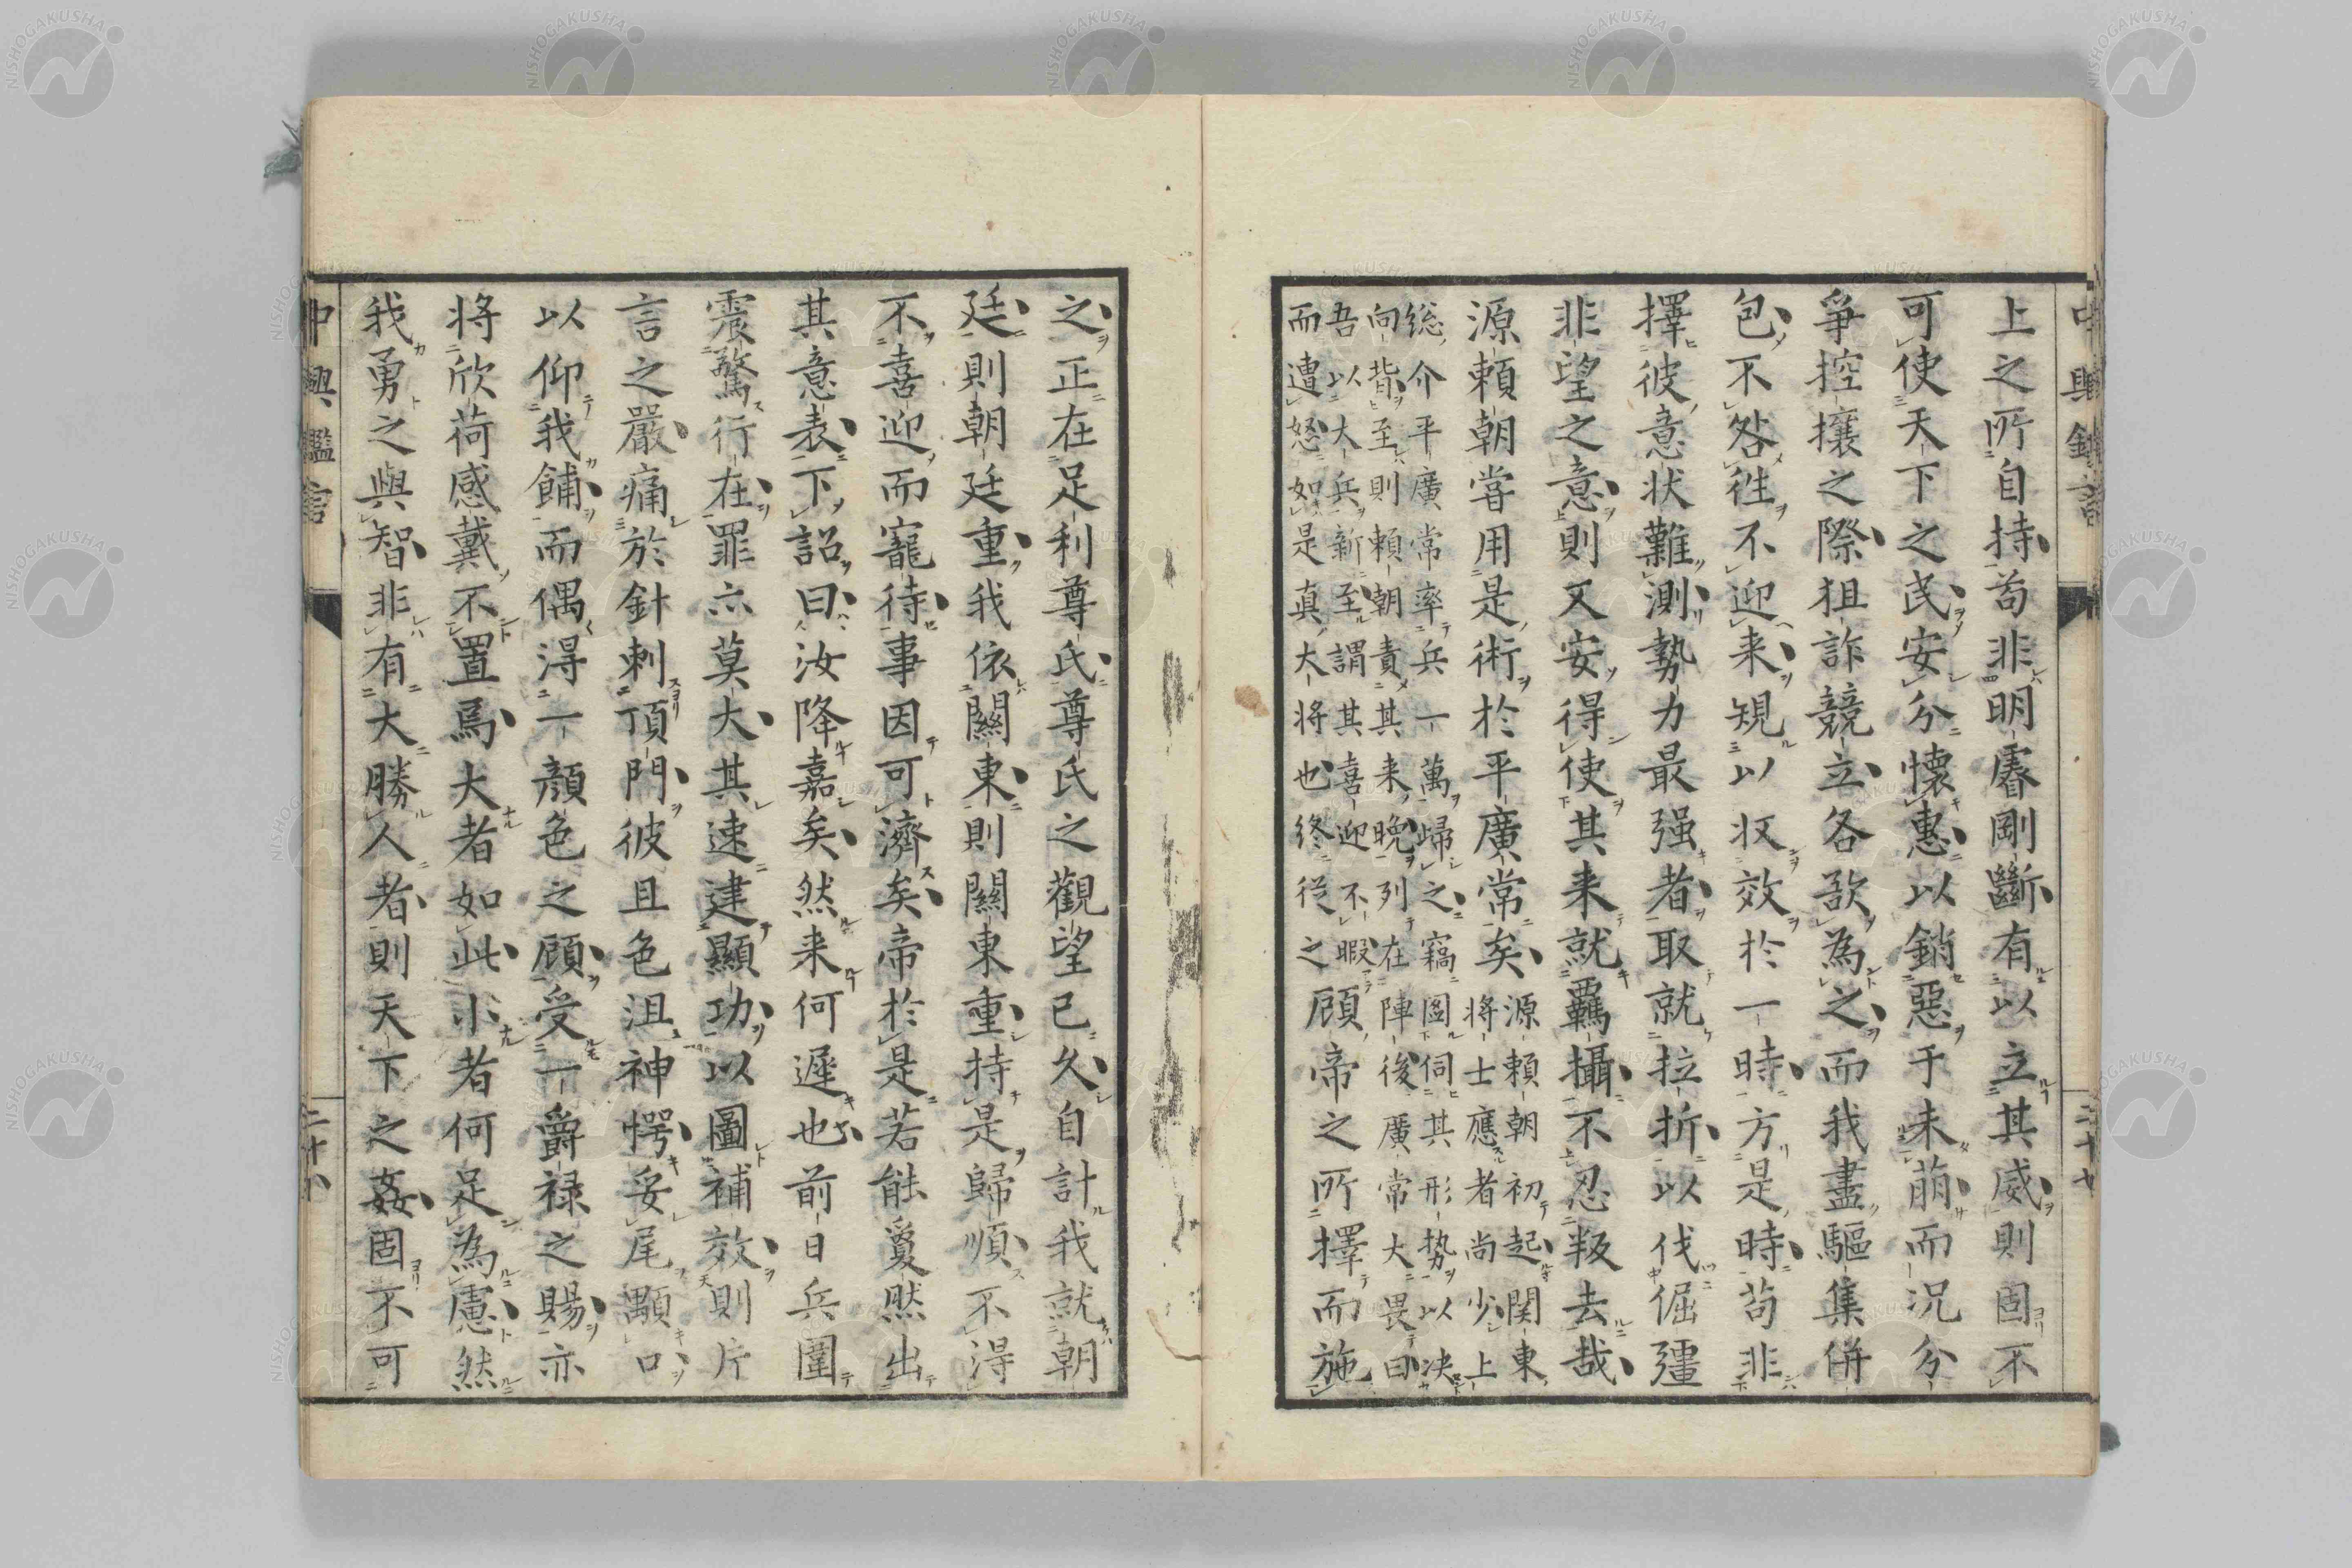 中興鑑言
三十七
上之所自持苟非明睿剛斷有以立其威則固不
可使天下之民安分懷惠以銷惡于未萠而況分
爭控攘之際狙詐競立各欲為之而我盡驅集併
包不咎徃不迎来規以收效於一時方是時苟非
擇彼意状難測勢力最强者取就拉折以伐倔彊
非望之意則又安得使其来就羈攝不忍叛去哉
源頼朝嘗用是術於平廣常矣
源頼朝初起関東
将士應者尚少上
総介平廣常率兵一萬歸之竊圖伺其形勢以决
向背至則頼朝責其来晩列在陣後廣常大畏曰
吾以大兵新至謂其喜迎不暇
而遭怒如是真大将也終従之
顧帝之所擇而施
之正在足利尊氏尊氏之觀望已久自計我就朝
廷則朝廷重我依關東則關東重持是歸順不得
不喜迎而寵待事因可濟矣帝於是若能奐然出
其意表下詔曰汝降嘉矣然来何遲也前日兵圍
震驚行在罪亦莫大其速建顯功以圖補效則片
言之嚴痛於針刺頂門彼且色沮神愕妥尾顒口
以仰我餔而偶得一顔色之顧受一爵禄之賜亦
将欣荷感戴不置焉大者如此小者何足為慮然
我勇之與智非有大勝人者則天下之姦固不可
中興鑑言
二十八